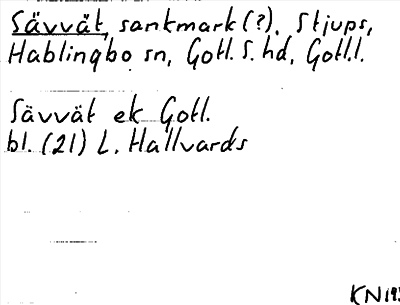 Sävvät, sankmark (?), Stjups,
Hablingbo sn, Gotl. S. hd, Gotl.l.
Sävvät ek Gotl.
bl. (21) L. Hallvards
KN